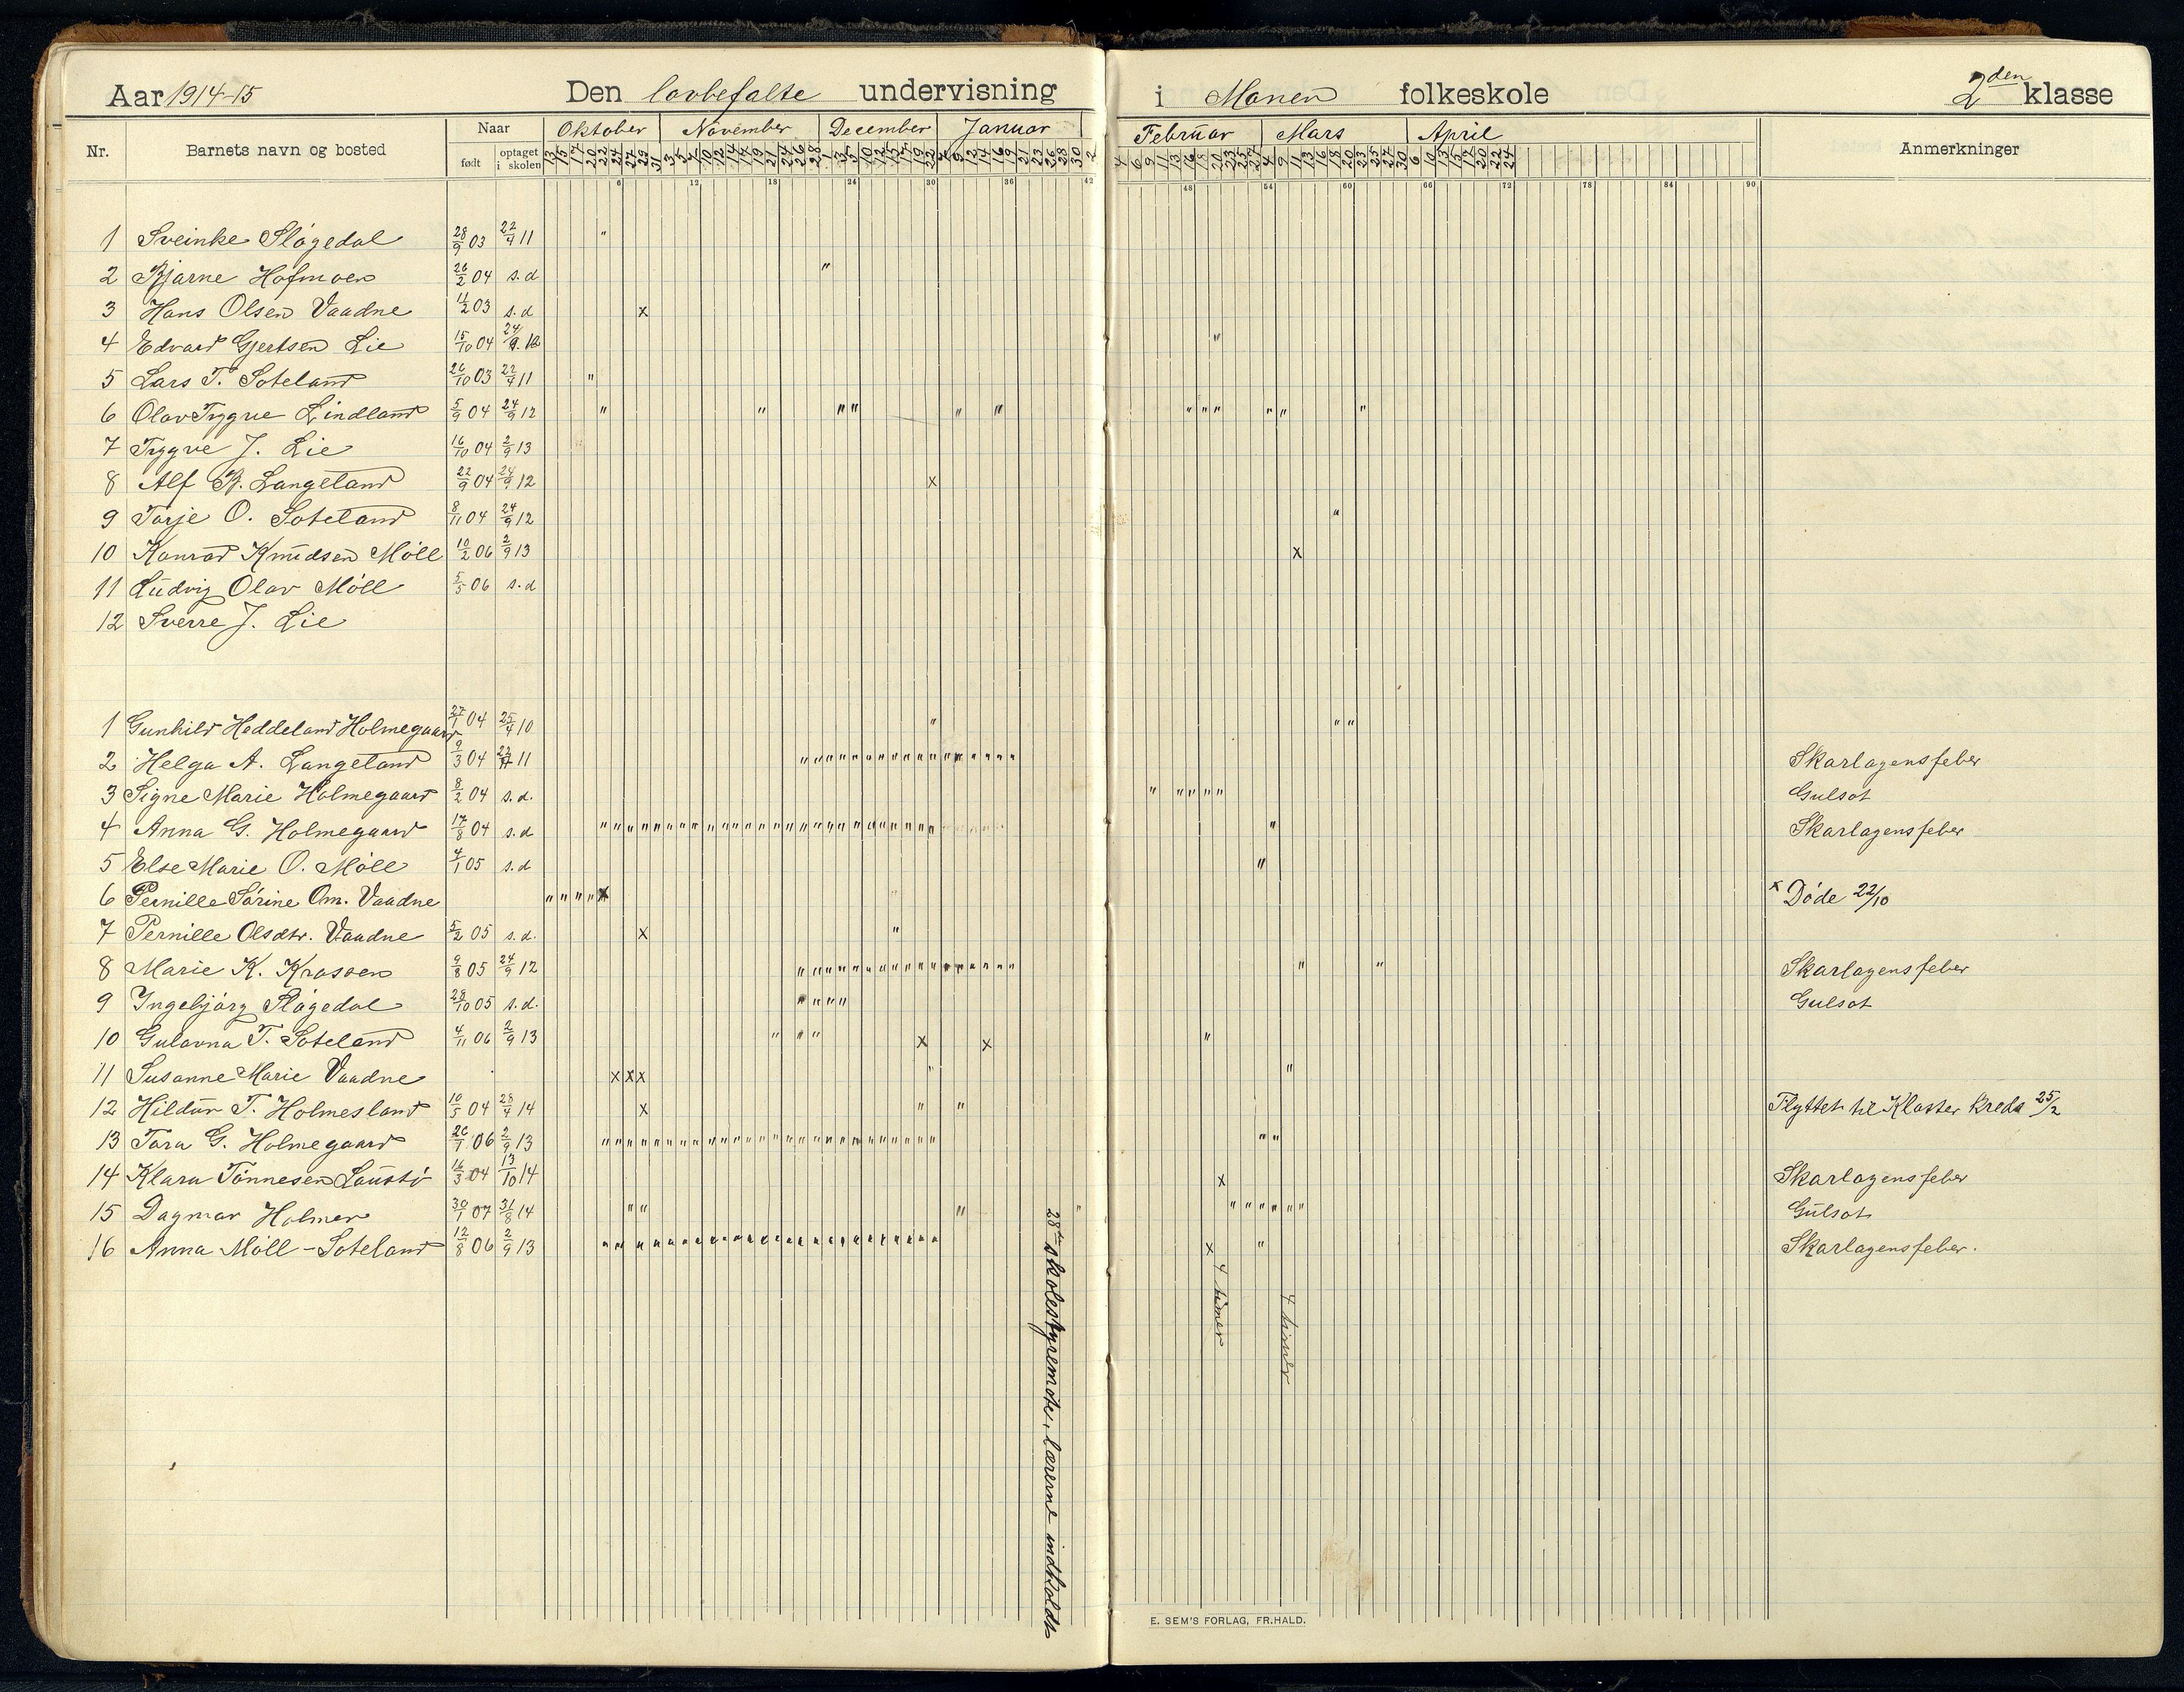 Aar 1914-15 Den lovbefalte undervisning i Monen folkeskole 2den klasse
Nr. Barnets navn og bosted Naar født optaget i skolen Oktober November December Januar Februar Mars April Anmerkninger
6 12 18 24 30 36 42 48 54 60 66 72 78 84 90
1 Sveinke Slögedal 28/9 03 22/4 11 "
2 Bjarne Hofmoen 26/2 04 s.d "
3 Hans Olsen Vaadne 11/2 03 s.d x
4 Edvard Gjertsen Lie 15/10 04 24/9 12 "
5 Lars T. Soteland 26/10 03 22/4 11 "
6 Olav Trygve Lindland 5/9 04 24/9 12 " " " " " " " " " " " "
7 Trygve J. Lie 16/10 04 2/9 13
8 Alf B. Langeland 22/9 04 24/9 12 x
9 Tarje O. Soteland 8/11 04 24/9 12 "
10 Konrad Knudsen Möll 10/2 06 2/9 13 x
11 Ludvig Olav Möll 5/5 06 s.d
12 Sverre J. Lie
1 Gunhild Heddeland Holmegaard 27/1 04 25/4 10 " " "
2 Helga A. Langeland 9/3 04 11 Skarlagensfeber
3 Signe Marie Holmegaard 8/2 04 s.d. " " " " " Gulsot
4 Anna G. Holmegaard 17/8 04 s.d Skarlagensfeber
5 Else Marie O. Möll 4/1 05 s.d "
6 Pernille Sörine Om. Vaadne " " " " x x Döde 22/10
7 Pernille Olsdtr. Vaadne 5/2 05 s.d. x "
8 Marie K. Krossen 9/8 05 24/9 12 Skarlagensfeber
9 Ingebjörg Slögedal 28/10 05 s.d. " " " " Gulsot
10 Gulanna T. Soteland 4/11 06 2/9 13 " " " x x "
11 Susanne Marie Vaadne x x x " "
12 Hildur T. Holmesland 10/5 04 28/4 14 x " " Flyttet til Kloster Kreds 25/2
13 Tora G. Holmegaard 26/1 06 2/9 13
14 Klara Tönnesen Laustö 16/3 04 13/10 14 x Skarlagensfeber
15 Dagmar Holmer 30/1 07 31/8 14 " " " " " " " " " " Gulsot
16 Anna Möll - Soteland 12/8 06 2/9 13 x " Skarlagensfeber.
28de skolestyremöte, lærerne indkaldt
4 timer
4 timer
E. SEM'S FORLAG, FR.HALD.